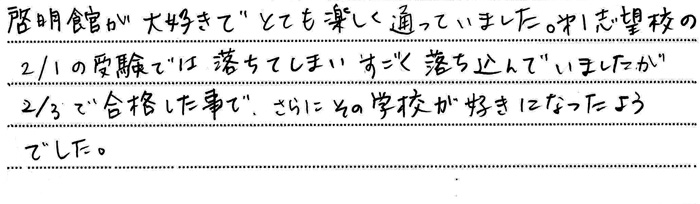 啓明館が大好きでとても楽しく通っていました。第1志望校の
2/1の受験では落ちてしまいすごく落ち込んでいましたが
2/3で合格した事で、さらにその学校が好きになったよう
でした。